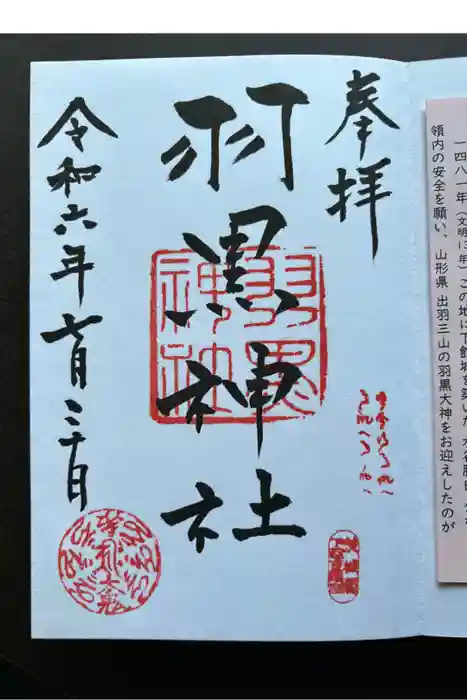 奉拝
羽黒神社
令和六年七月三十日
羽黒
神社
一四八一年(文明13年)この地に下館城を築いた水谷勝氏
領内の安全を願い、山形県 出羽三山の羽黒大神をお迎えしたのが